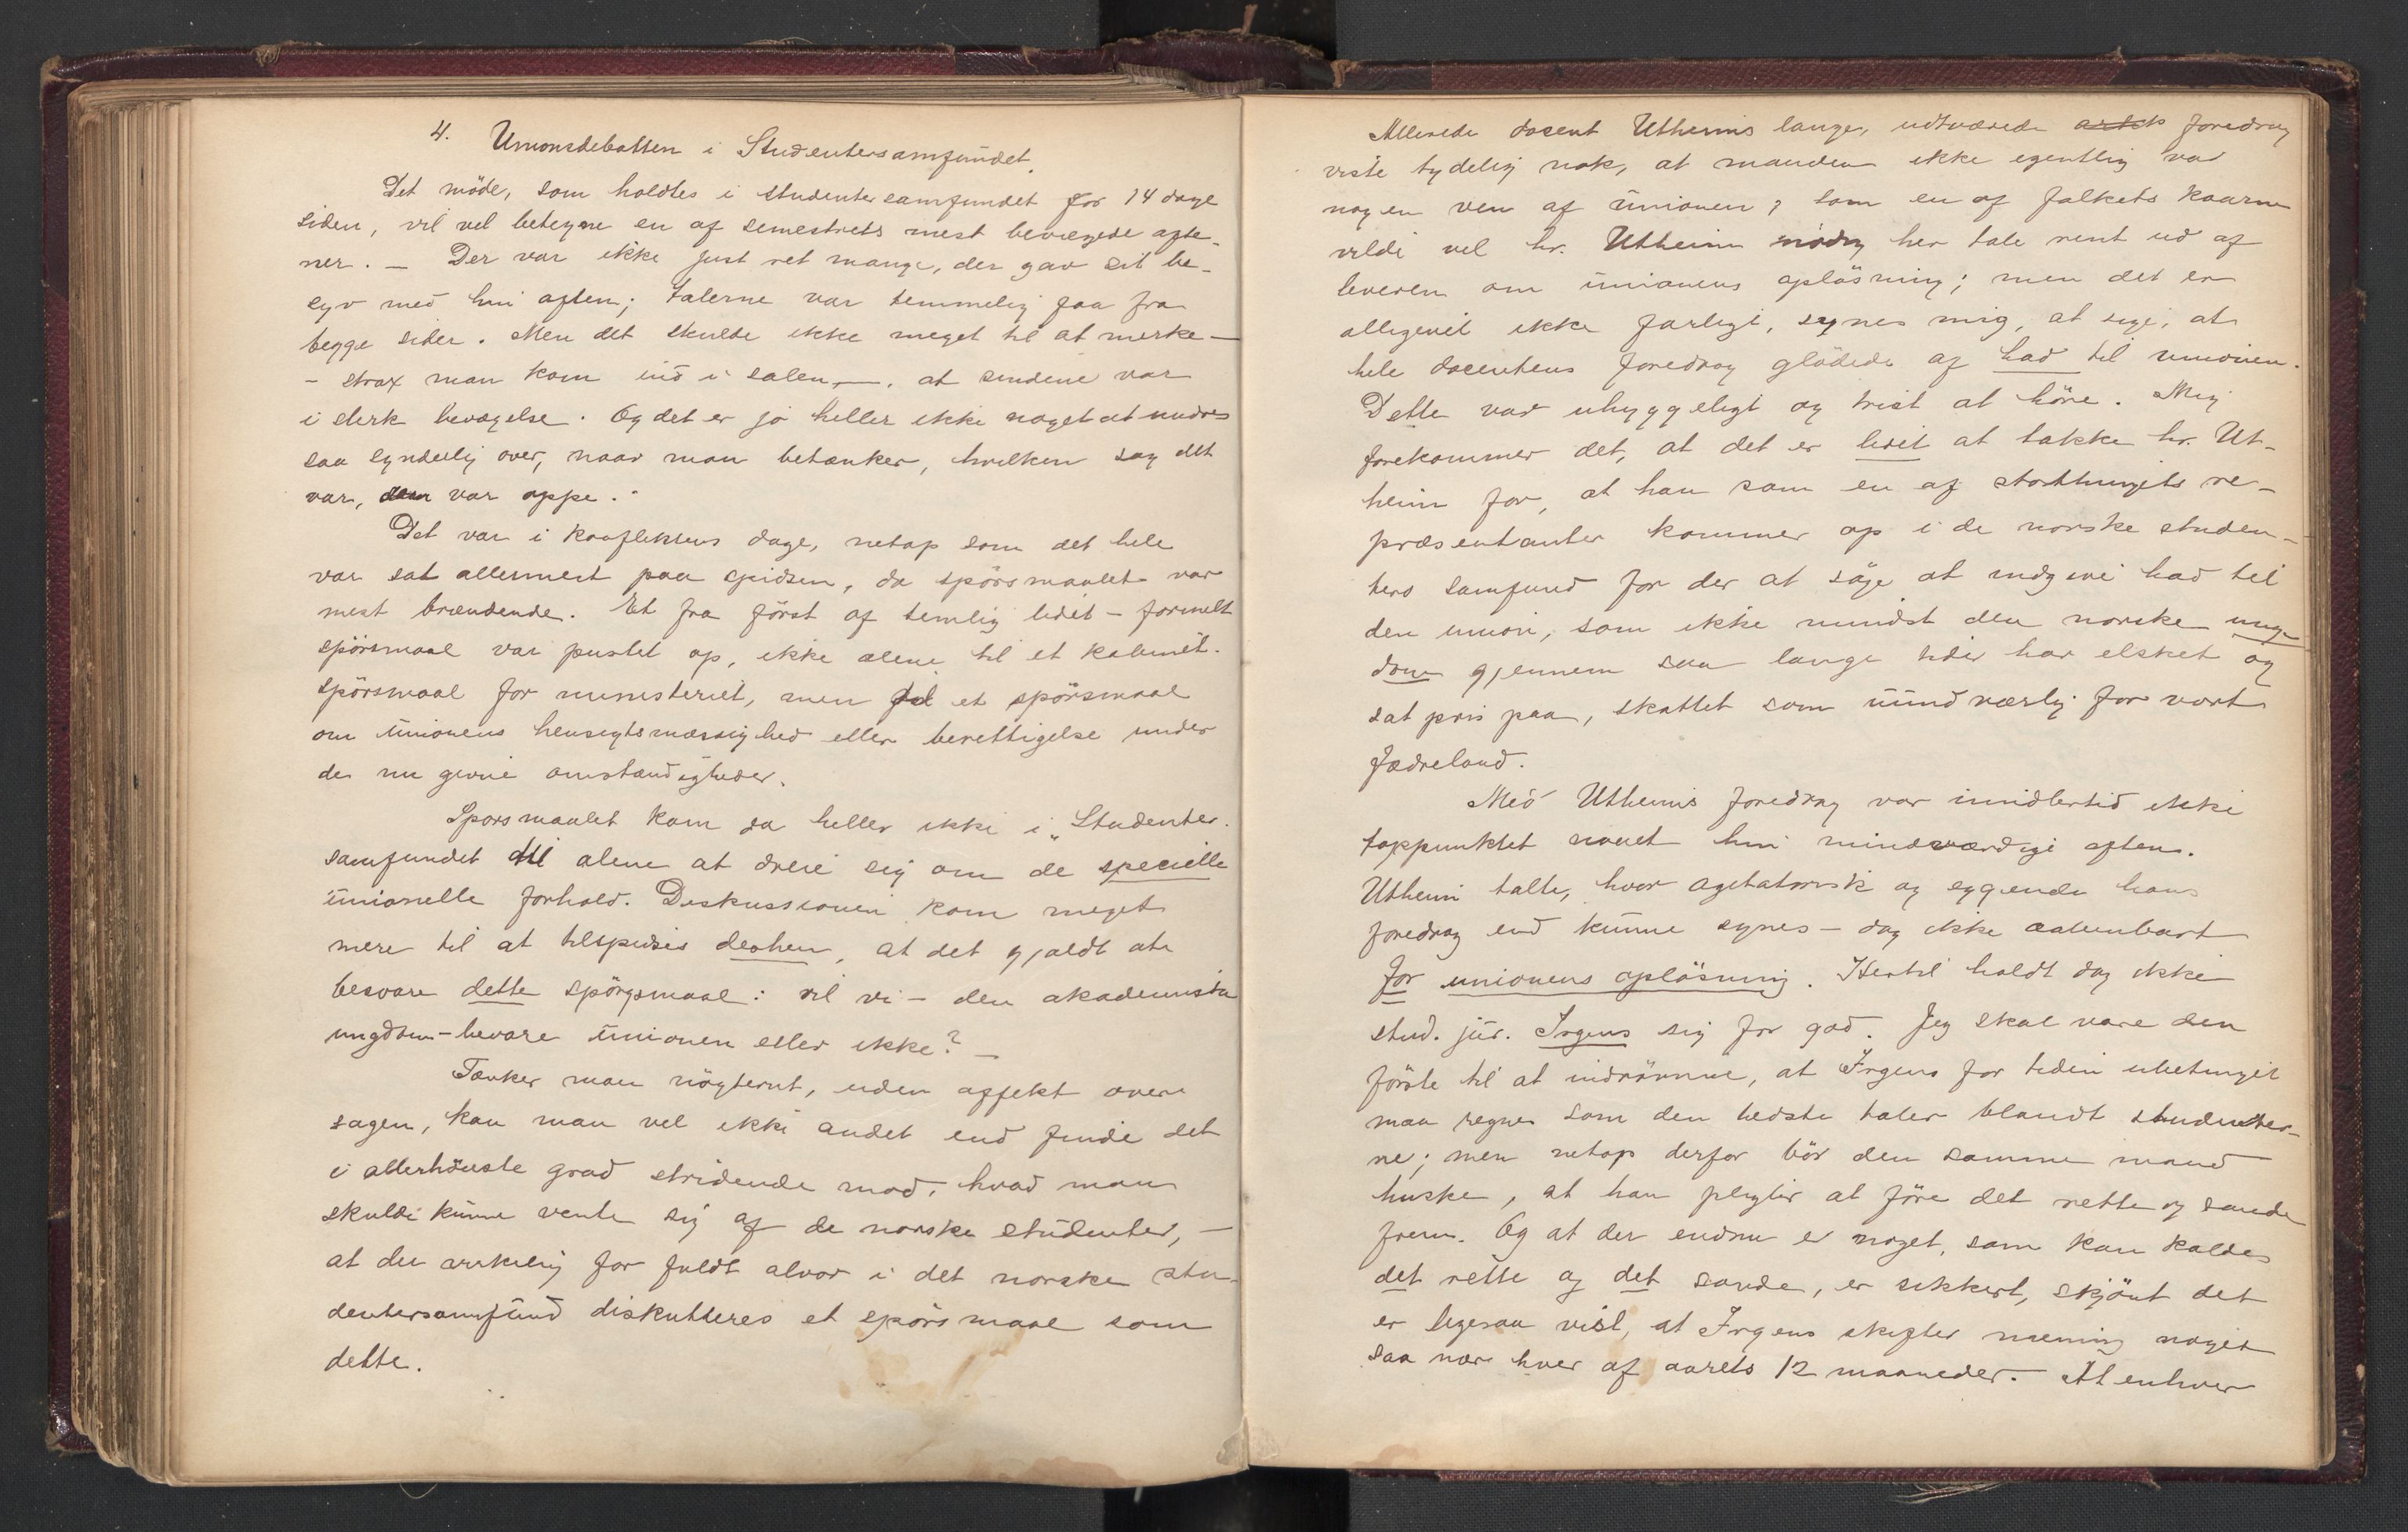 4. Unionsdebatten i Studentersamfundet.
Det möde, som holdtes i studentersamfundet for 14 dage
siden, vil vel betegne en af semestrets mest bevægede afte-
ner. – Der var ikke just ret mange, der gav sit be-
syv med hin aften; talerne var temmelig faa fra
begge sider. Men det skulde ikke meget til at merke –
– strax man kom ind i salen –, at sindene var
i sterk bevægelse. Og det er jo heller ikke noget at undres
saa synderlig over, naar man betænker, hvilken sag det
var, der var oppe.
Det var i konfliktens dage, netop som det hele
var sat allermest paa spidsen, da spörsmaalet var
mest brændende. Et fra först af temlig lidet – formelt
spörsmaal var pustet op, ikke alene til et kabinet-
spörsmaal for ministeriet, men til et spörsmaal
om unionens hensigtsmæssighed eller berettigelse under
de nu givne omstændigheder.
Spörsmaalet kom da heller ikke i „Studenter-
samfundet til alene at dreie sig om de specielle
unionelle forhold. Diskussionen kom meget
mere til at tilspidses derhen, at det gjaldt at
besvare dette spörgsmaal: vil vi – den akademiske
ungdom – bevare unionen eller ikke? –
Tænker man nögternt, uden affekt over
sagen, kan man vel ikke andet end finde det
i allerhöieste grad stridende mod, hvad man
skulde kunne vente sig af de norske studenter, –
at der virkelig for fuldt alvor i det norske stu-
dentersamfund diskutteres et spörsmaal som
dette.
Allerede docent Utheims lange, udtværede foredrag
viste tydelig nok, at manden ikke egentlig var
nogen ven af unionen; som en af folkets kaarne
vilde vel hr. Utheim nödig her tale rent ud af
leveren om unionens oplösning; men det er
alligevel ikke farligt, synes mig, at sige, at
hele docentens foredrag glödede af had til unionen.
Dette var uhyggeligt og trist at höre. Mig
forekommer det, at det er lidet at takke hr. Ut-
heim for, at han som en af storthingets re-
præsentanter kommer op i de norske studen-
ters samfund for der at söge at indgive had til
den union, som ikke mindst den norske ung-
dom gjennem saa lange tider har elsket og
sat pris paa, skattet som uundværlig for vort
fædreland.
Med Utheims foredrag var imidlertid ikke
toppunktet naaet hin mindeværdige aften.
Utheim talte, hvor agitatorisk og eggende hans
foredrag end kunne synes – dog ikke aabenbart
for unionens oplösning. Hertil holdt dog ikke
stud. jur. Irgens sig for god. Jeg skal være den
förste til at indrömme, at Irgens for tiden ubetinget
maa regnes som den bedste taler blandt studenter-
ne; men netop derfor bör den samme mand
huske, at han pligter at före det rette og sande
frem. Og at der endnu er noget, som kan kaldes
det rette og det sande, er sikkert, skjönt det
er ligesaa vist, at Irgens skifter mening noget
saa nær hver af aarets 12 maaneder. At enhver